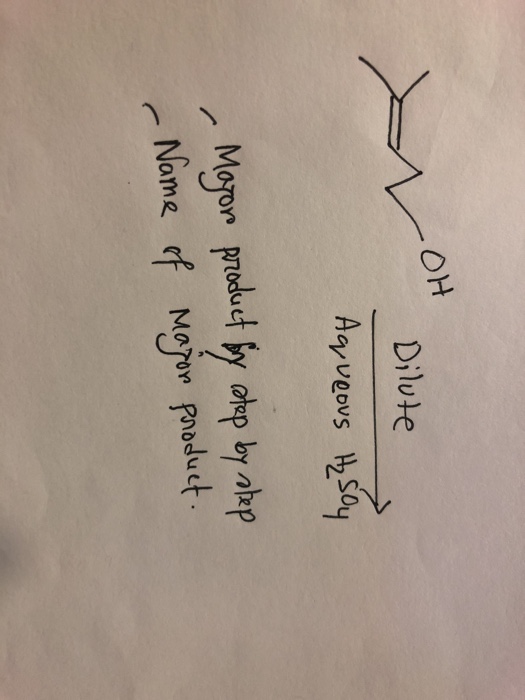 OH
Dilute
Aqueous H₂SO₄
- Major product by step by step
- Name of Major product.